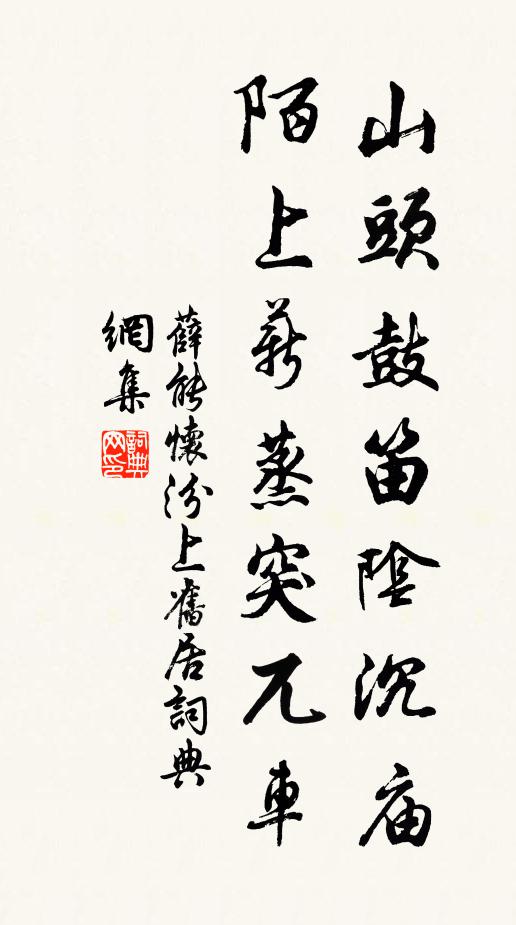 山頭鼓笛陰沉庙
陌上薪蒸突兀車
薛能懷汾上舊居詞典
網集
詞典
网印